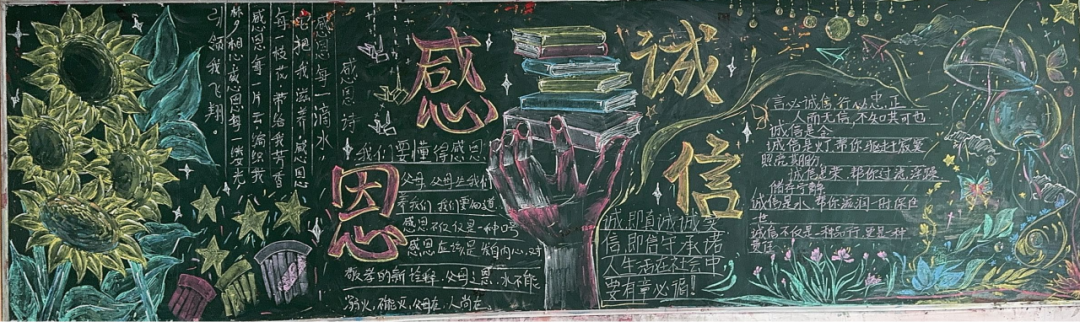 感恩
诚信
感恩诗
感恩每一滴水，
它把我滋养 感恩
每一枝花 带给我芳香
感恩每一片云 编织我
梦想 感恩每一缕阳光
引领我飞翔。
我们要懂得感恩
父母，父母生我们
养我们，我们要知道
感恩不仅仅是一种口号
感恩应当是发自内心，对
父母之恩，水不能
溺，火不能灭，父母在，人尚在。
诚，即真诚，诚实
信，即信守承诺
人生活在社会中，
要有章必循！
言必诚信，行必忠正
人而无信，不知其可也
诚信是金
诚信是灯，带你驱走寂寞
照亮期盼
诚信是水，带你滋润一时
诚信不仅是一种品行，更是一种
责任